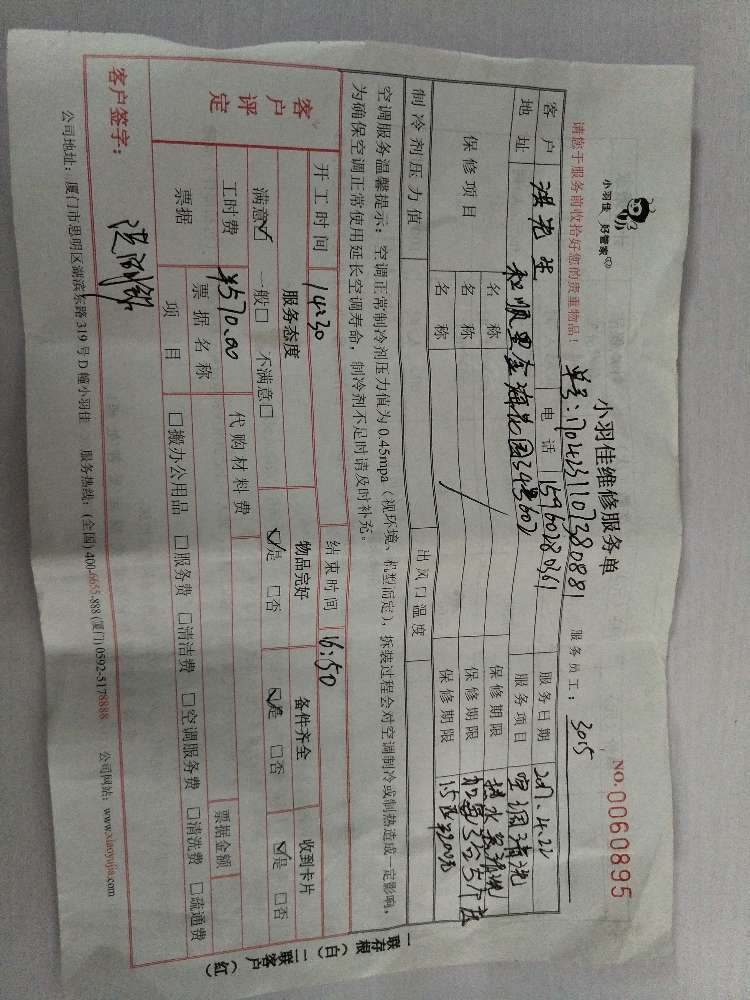 小羽佳 好管家
小羽佳维修服务单
NO.0060895
单号:170423110738088 1
请您于服务前收拾好您的贵重物品!
服务员工: 3015
客户 洪先生 电话 15960280361 服务日期 2017.4.22
地址 和顺里金海花园34号602 服务项目 空调清洗
保修项目 名称 保修期限
名称 保修期限
名称 保修期限
制冷剂压力值 出风口温度
空调服务温馨提示:空调正常制冷剂压力值为0.45mpa(视环境、机型而定),拆装过程会对空调制冷或制热造成一定影响,
为确保空调正常使用延长空调寿命,制冷剂不足时请及时补充。
开工时间 14:30 结束时间 16:50
客户评定 服务态度 物品完好 备件齐全 收到卡片
满意☑ 一般□ 不满意□ ☑是 □否 ☑是 □否 ☑是 □否
工时费 ¥570.00 代购材料费
票据 票据名称 票据金额
项目 □搬办公用品 □服务费 □清洁费 □空调服务费 □清洗费 □疏通费
客户签字:
公司地址:厦门市思明区湖滨东路319号D幢小羽佳 服务热线:(全国)400-6655-888 (厦门)0592-5178888 公司网站:www.xiaoyujia.com
一联存根(白) 二联客户(红)